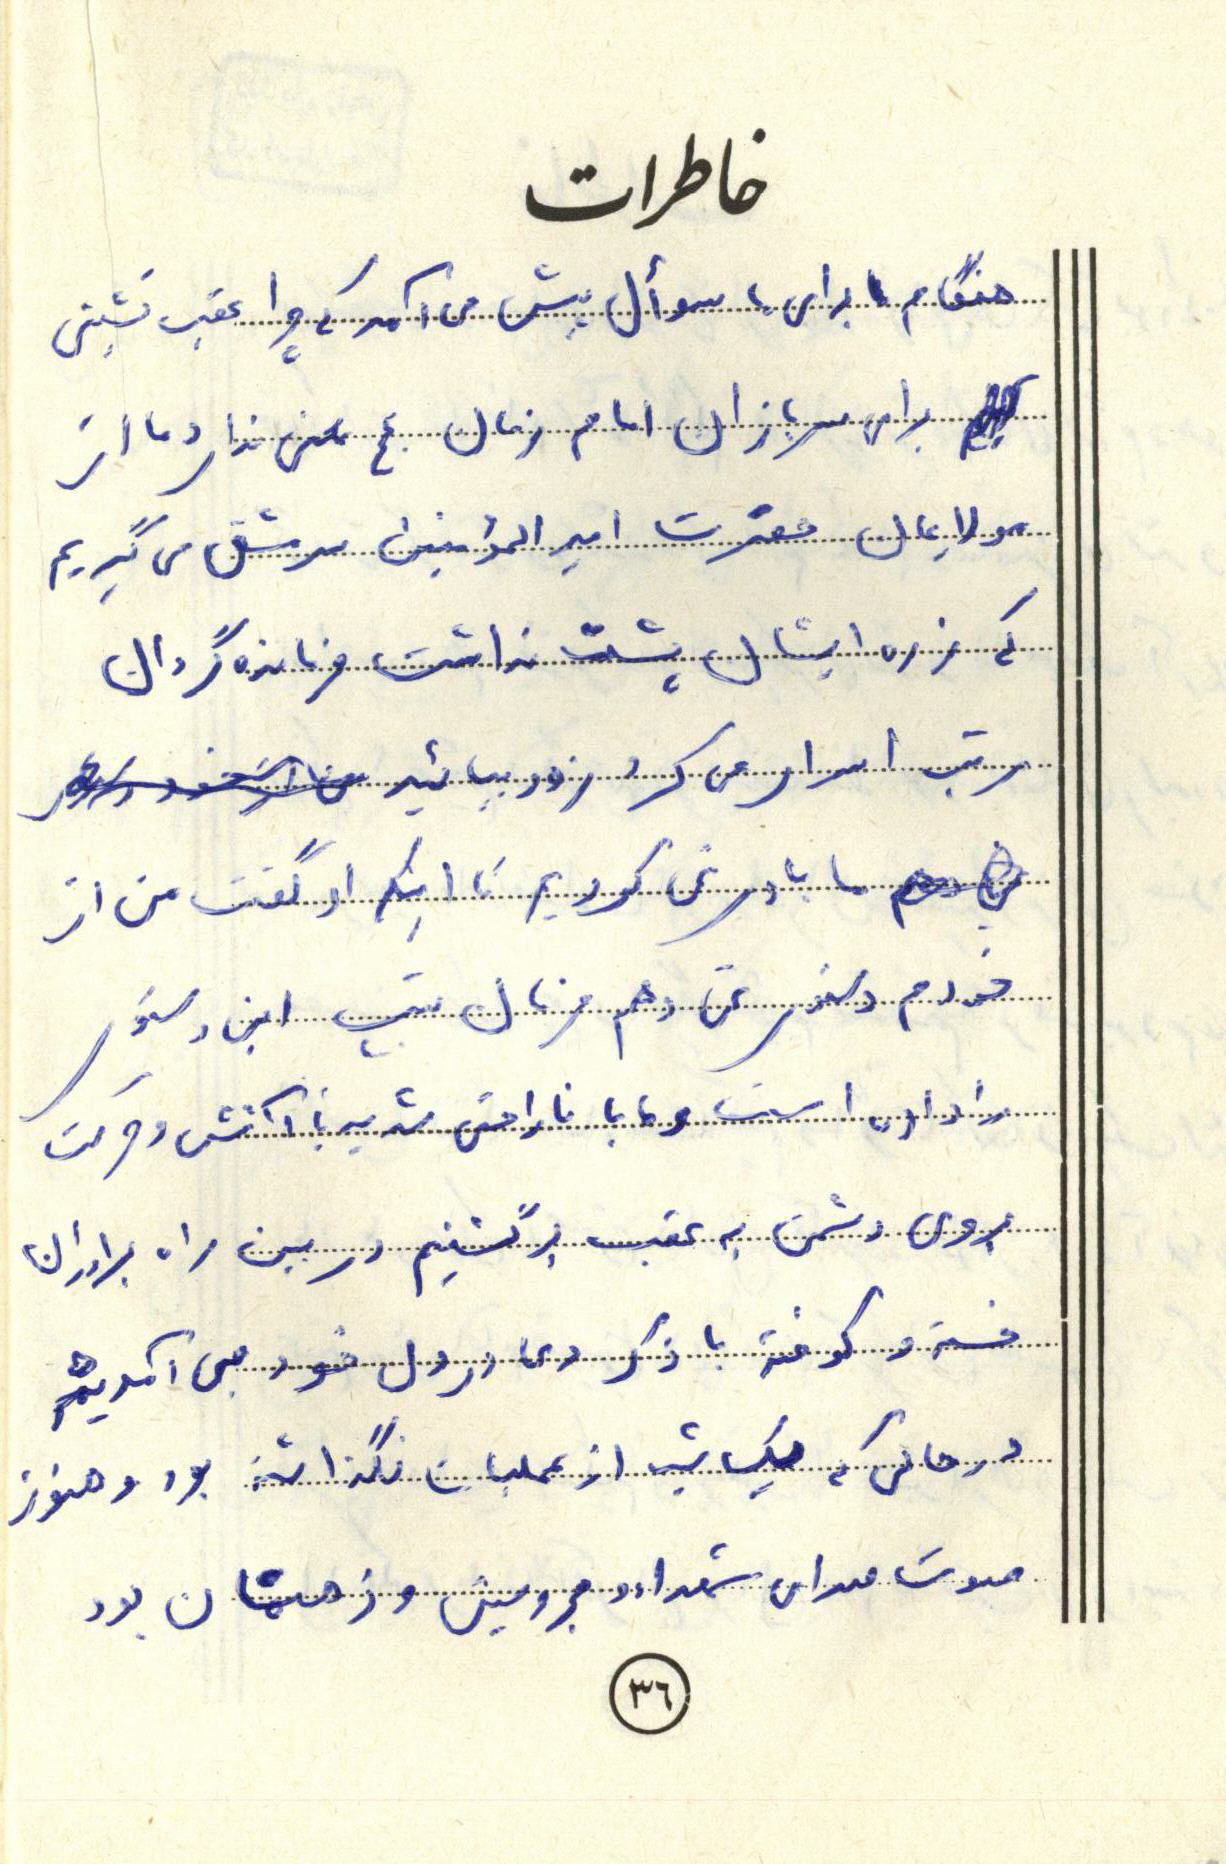 خاطرات
هنگام برای ما سوأل پیش می آمد که چرا عقب نشینی
برای سربازان امام زمان عج معنی ندارد ما از
مولایمان حضرت امیرالمؤمنین سرمشق می گیریم
که زره ایشان پشت نداشت فرمانده گردان
مرتب اسرار می کرد زود بیائید
ما باور نمی کردیم تا اینکه او گفت من از
خودم دستور نمی دهم فرمان تیپ این دستور
را داده است و ما با ناراحتی شدید با آتش و حرکت
بروی دشمن به عقب برگشتیم در بین راه برادران
خسته و کوفته با ذکر دعا در دل خود می آمدیم
در حالی که یک شب از عملیات نگذاشته بود و هنوز
صوت صدای شهداء و مجروحین در ذهنشان بود
٣٦